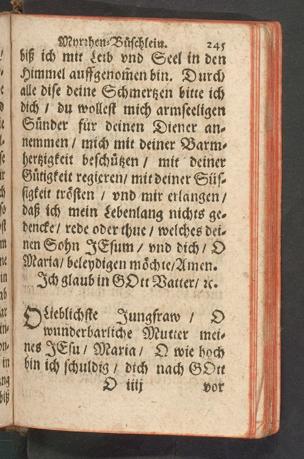 Myrrhen-Büschlein. 245
biß ich mit Leib vnd Seel in den
Himmel auffgenom̄en bin. Durch
alle dise deine Schmertzen bitte ich
dich / du wollest mich armseeligen
Sünder für deinen Diener an-
nemmen / mich mit deiner Barm-
hertzigkeit beschützen / mit deiner
Gütigkeit regieren / mit deiner Süs-
sigkeit trösten / vnd mir erlangen /
daß ich mein Lebenlang nichts ge-
dencke / rede oder thue / welches dei-
nen Sohn JEsum / vnd dich / O
Maria / beleydigen möchte / Amen.
Jch glaub in GOtt Vatter / ꝛc.
O Lieblichste Jungfraw / O
wunderbarliche Mutter mei-
nes JEsu / Maria / O wie hoch
bin ich schuldig / dich nach GOtt
O iiij vor